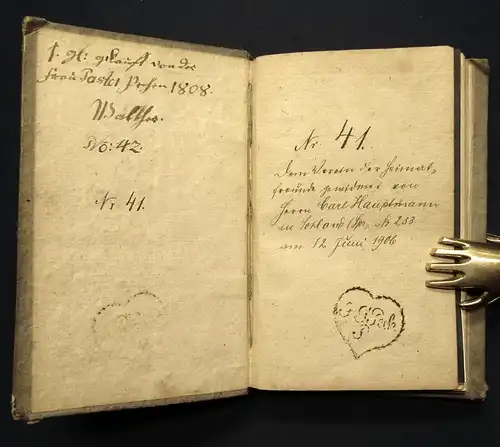 1. gl: gekauft von der
Frau Pastor Pechen 1808.
Walther.
No: 42.
Nr 41.
Nr. 41.
Dem Verein der Heimat-
freunde gewidmet von
Herrn Carl Hauptmann
in Sohland /Spr. Nr 233
am 12 Juni 1906